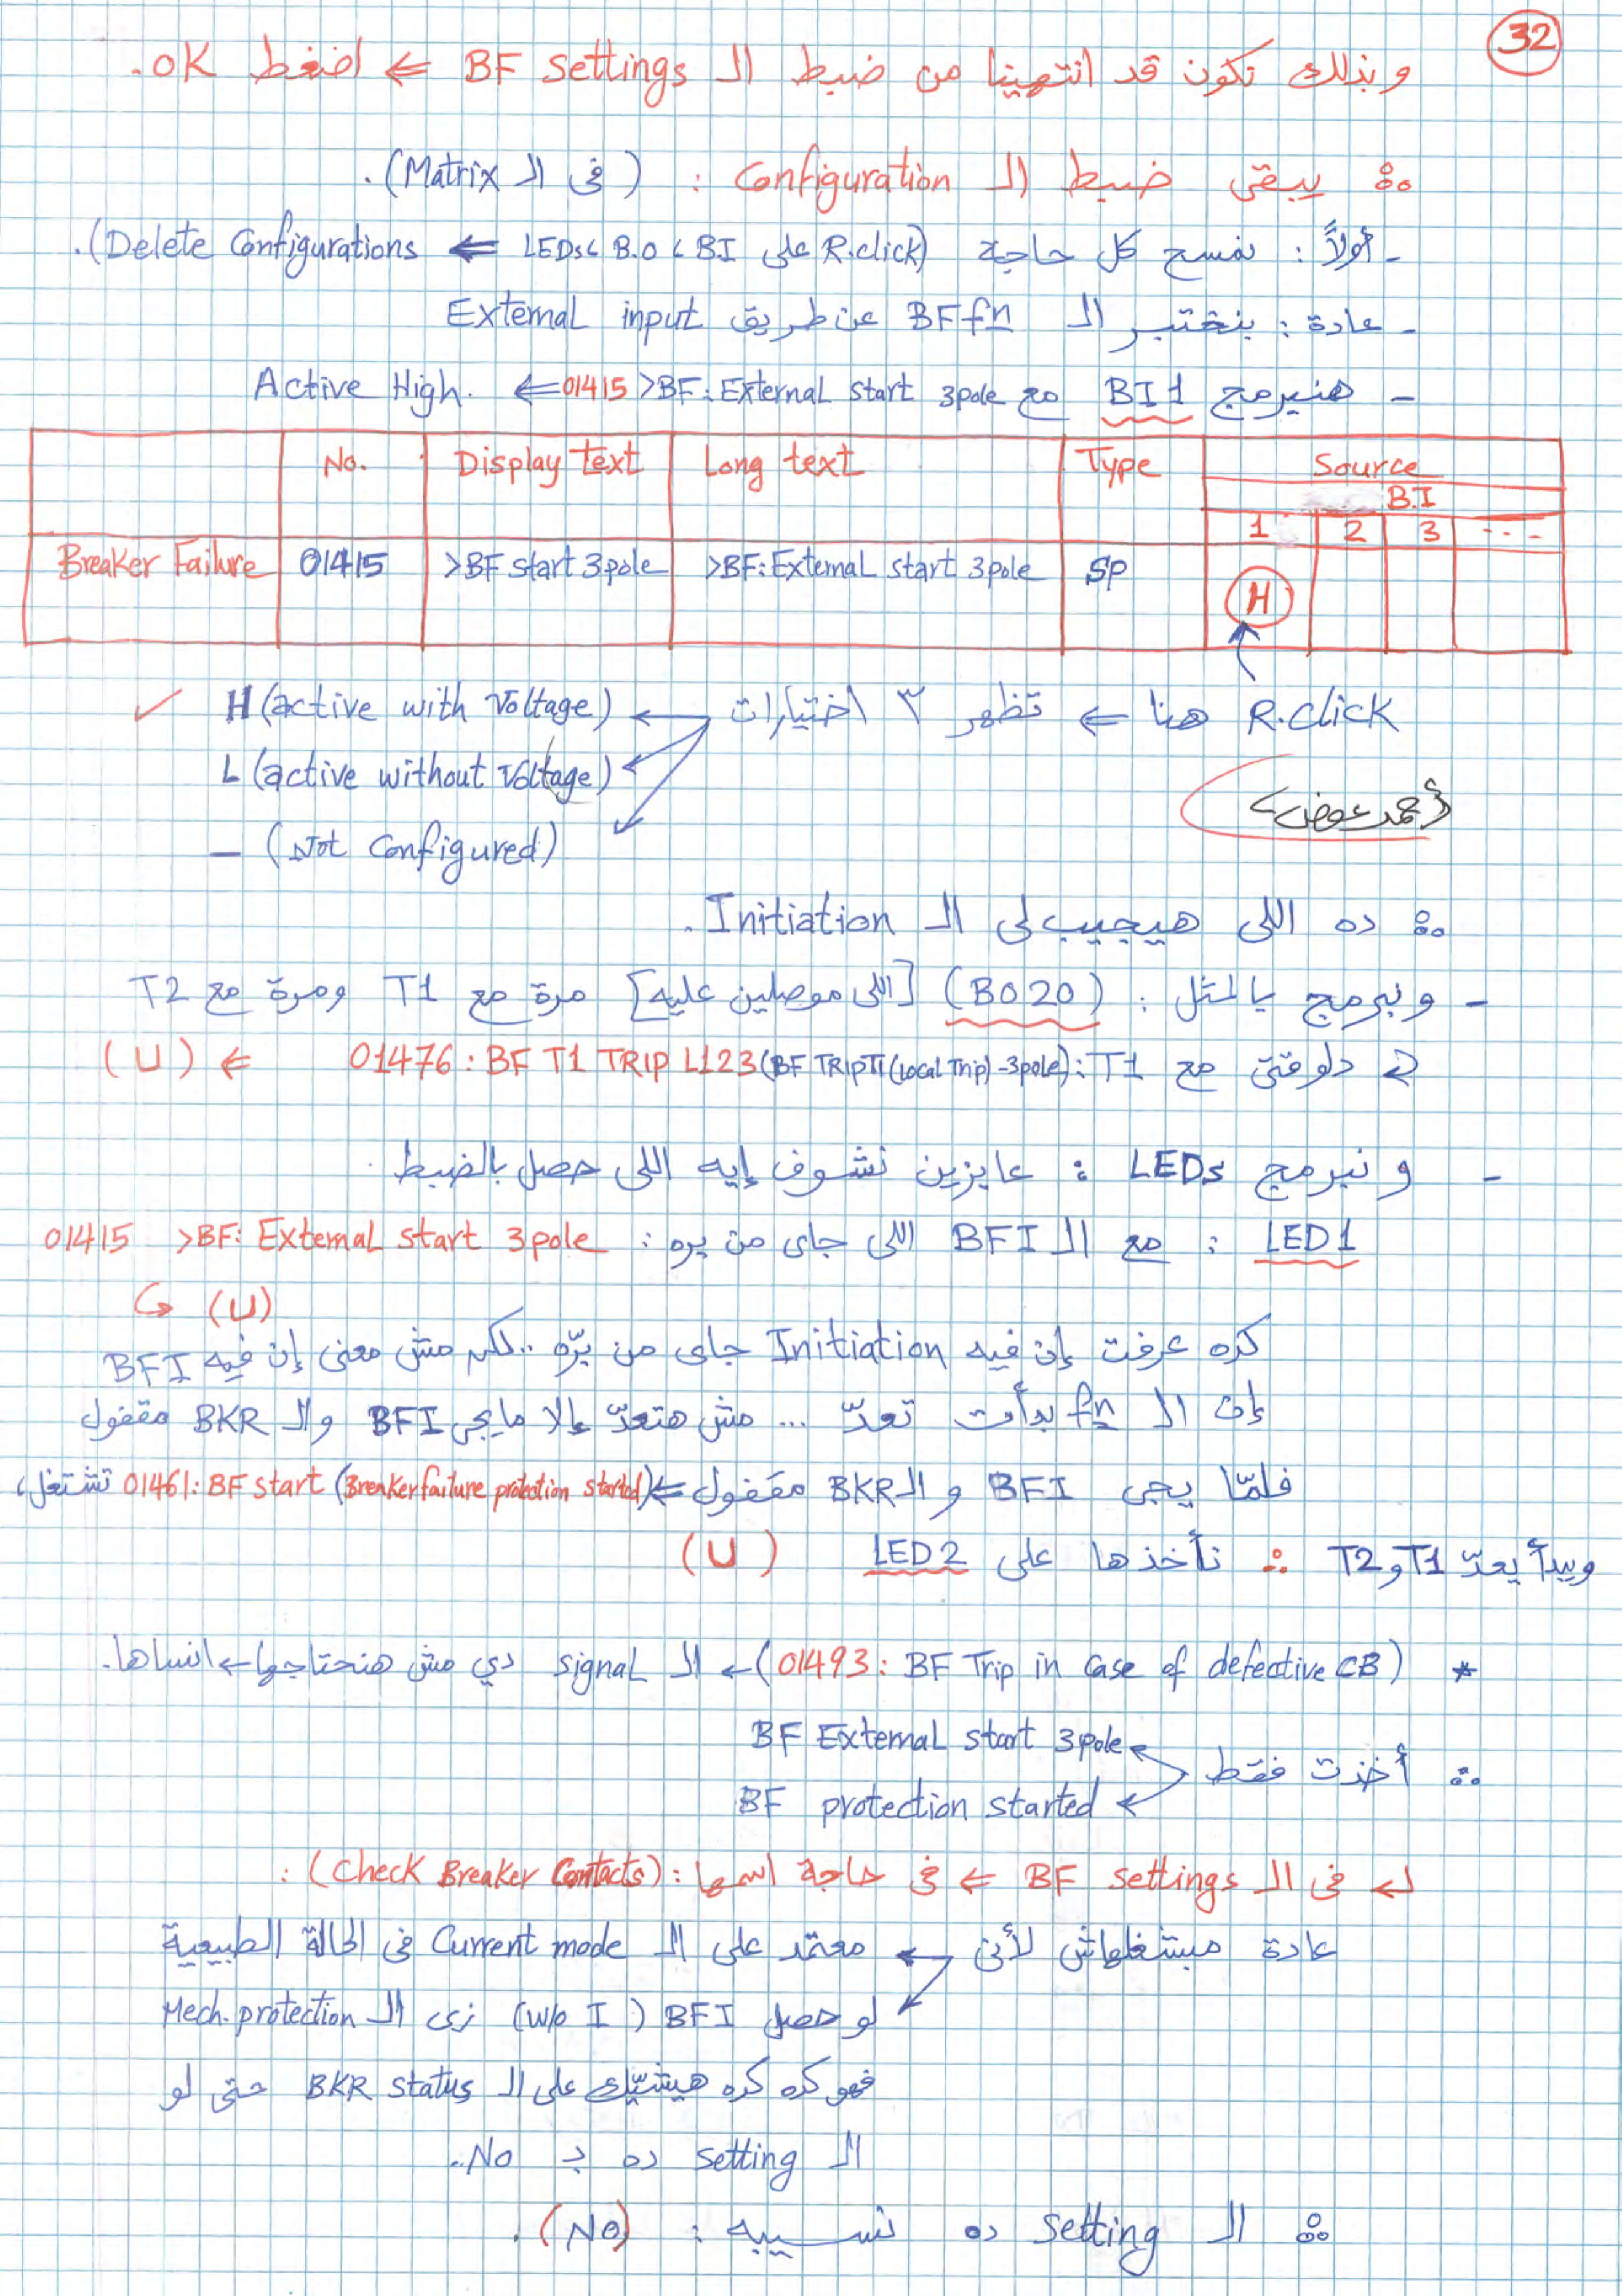 32
وبذلك نكون قد انتهينا من ضبط الـ BF settings ⇐ اضغط OK.
∴ يبقى ضبط الـ Configuration : (فى الـ Matrix).
- أولاً : نمسح كل حاجة (R.click على BI ، B.O ، LEDs ⇐ Delete Configurations).
- عادة : بنختبر الـ BF fn عن طريق External input
- هنبرمج BI1 مع 01415 >BF: External start 3pole ⇐ Active High.
No. Display text Long text Type Source
B.I
1 2 3 ----
Breaker Failure 01415 >BF start 3pole >BF: External start 3pole SP H
R.click هنا ⇐ تظهر ٣ اختيارات
H (active with Voltage) ✓
L (active without Voltage)
— (Not Configured)
أحمد عوض
∴ ده اللى هيجيب لى الـ Initiation.
- ونبرمج بالمثل : (BO20) [اللى موصلين عليه] مرة مع T1 ومرة مع T2
دلوقتى مع T1 : 01476 : BF T1 TRIP L123 (BF TRIP T1 (Local Trip) -3pole) ⇐ (U)
- ونبرمج LEDs : عايزين نشوف إيه اللى حصل بالضبط.
LED1 : مع الـ BFI اللى جاى من بره : 01415 >BF: External start 3pole
(U)
كده عرفت إن فيه Initiation جاى من برّه .. لكن مش معنى إن فيه BFI
إن الـ fn بدأت تعدّ ... مش هتعدّ إلا ما يجى BFI والـ BKR مقفول
فلمّا يجى BFI و الـ BKR مقفول ⇐ 01461: BF start (Breaker failure protection started) تشتغل،
ويبدأ يعدّ T1 و T2 ∴ نأخذها على LED2 (U)
* (01493: BF Trip in Case of defective CB) ← الـ signal دي مش هنحتاجها ← انساها.
∴ أخذت فقط
BF External start 3pole
BF protection started
فى الـ BF settings ⇐ فى حاجة اسمها : (Check Breaker Contacts) :
عادة مبنشغلهاش لأنى معتمد على الـ Current mode فى الحالة الطبيعية
لو حصل BFI (w/o I) زى الـ Mech. protection
فهو كده كده هيشيّك على الـ BKR status حتى لو
الـ setting ده بـ No.
∴ الـ setting ده نسيبه : (No).